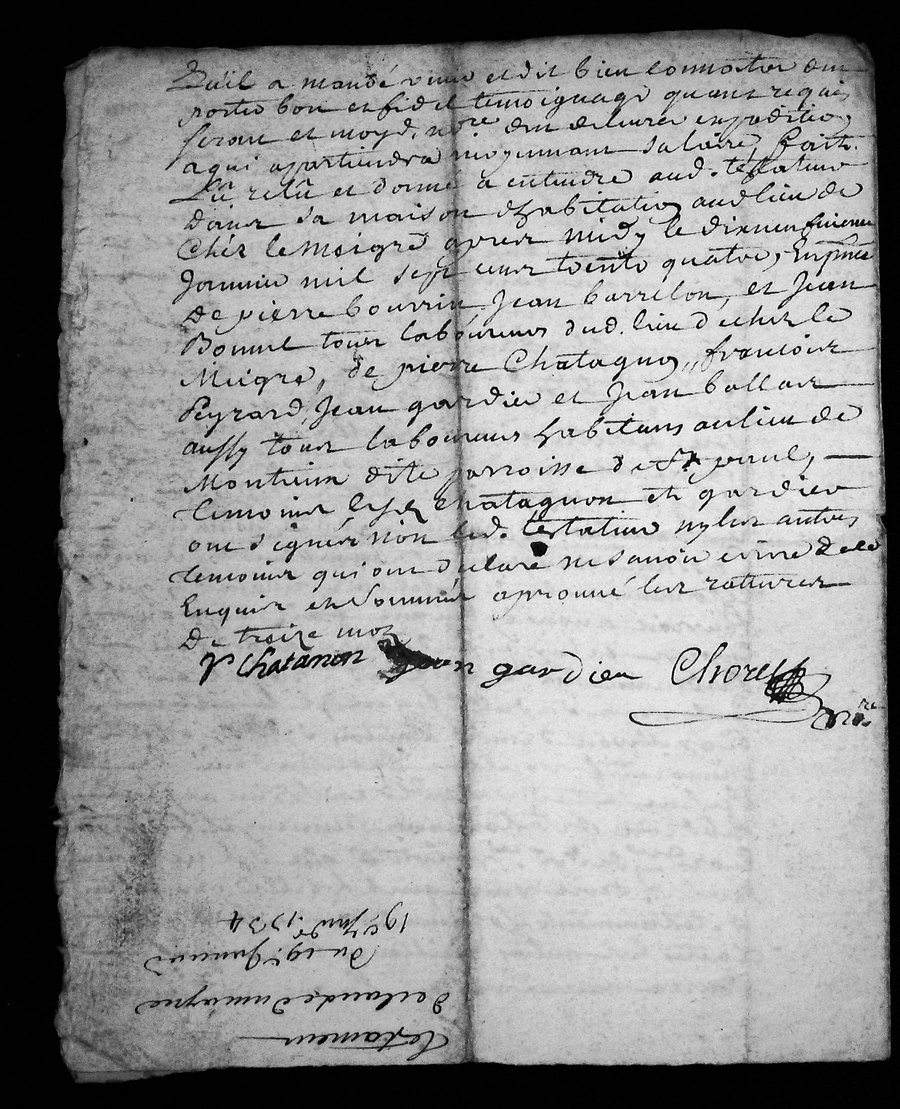 Quil a mandé venir et dit bien connoitre Em
porter bon et fidel temoignage quant requis
seront et moyd. nore Em delivrer expedition
a qui apartiendra moyennant salaire, fait
Lû relû et donné a entendre aud. testateur
dans sa maison dhabitation audlieu de
Chéz le Meigre apres midy le dixneufvieme
Janvier mil sept cent trente quatre, En pnce
de pierre bourrin, Jean barrelon, et Jean
tous laboureurs dud. lieu de chez le
Meigre, de pierre Chatagnon, francois
Peyrard, Jean gardier et Jean ballais
aussy tous laboureurs habitans au lieu de
Montieux dite parroisse de St paul,
temoins lesd. Chatagnon et gardier
ont signés non led. testateur ny les autres
temoins qui ont declaré ne savoir ecrire de ce
Enquis et sommés aprouvé les ratures
De treize mots
P Chatanon Jean gardien Chorel
nre
Testament
de claude dumaigne
du 19e Janvier
19e Janv. 1734